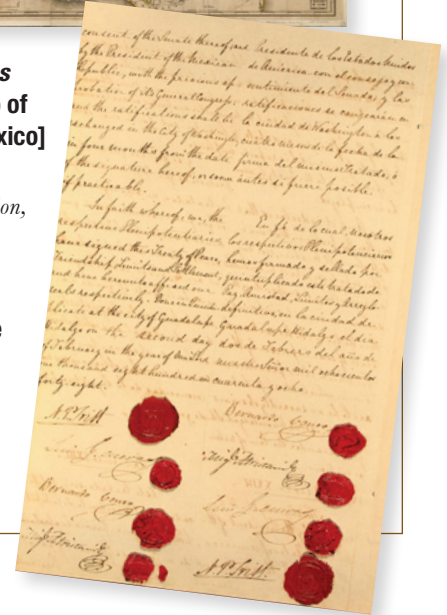 s
of
xico]
on,
e
consent of the Senate thereof; and
by the President of the Mexican
Republic, with the previous ap-
probation of its General Congress;
and the ratifications shall be
exchanged in the City of Washington,
in four months from the date
of the signature hereof, or sooner
if practicable.
In faith whereof, we, the
respective Plenipotentiaries,
have signed this Treaty of Peace,
Friendship, Limits and Settlement,
and have hereunto affixed our
seals respectively. Done in Quintu-
plicate at the city of Guadalupe
Hidalgo on the second day
of February in the year of our Lord
one thousand eight hundred and
forty-eight.
Presidente de los Estados Unidos
de America con el consejo y con-
sentimiento del Senado, y las
ratificaciones se cangearán en
la ciudad de Washington a los
cuatro meses de la fecha de la
firma del mismo Tratado, ó
antes si fuere posible.
En fé de lo cual, nosotros
los respectivos Plenipotenciarios
hemos firmado y sellado por
quintuplicado este tratado de
Paz, Amistad, Limites y Arreglo
definitivo en la ciudad de
Guadalupe Hidalgo el dia
dos de Febrero del año de
mil ochocientos
cuarenta y ocho.
N. P. Trist
Luis G. Cuevas
Bernardo Couto
Migl. Atristain
Bernardo Couto
Migl. Atristain
Luis G. Cuevas
N. P. Trist